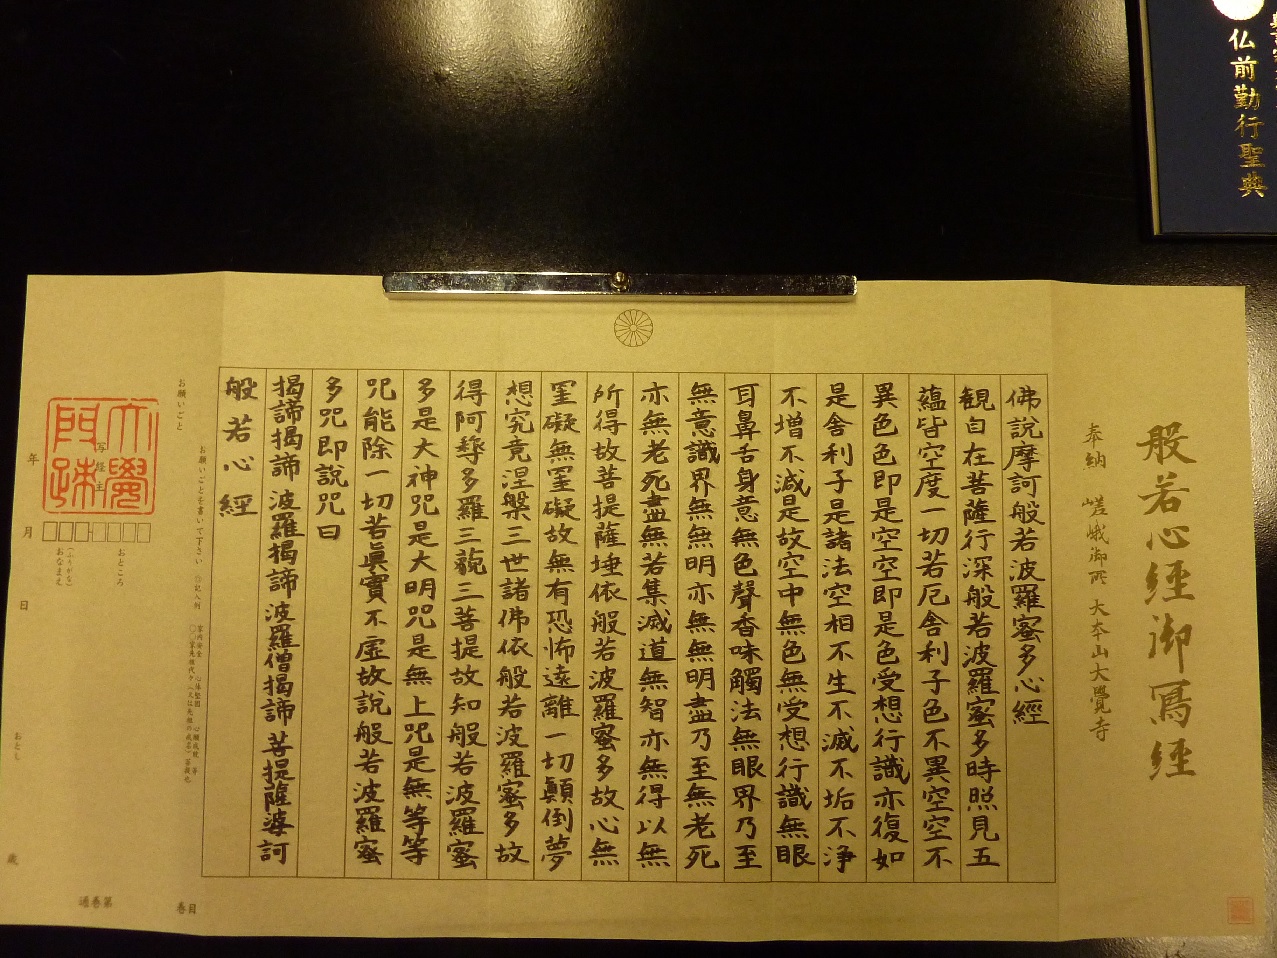 仏前勤行聖典
般若心経御寫経
奉納 嵯峨御所 大本山大覺寺
佛說摩訶般若波羅蜜多心經
観自在菩薩行深般若波羅蜜多時照見五
蘊皆空度一切苦厄舎利子色不異空空不
異色色即是空空即是色受想行識亦復如
是舎利子是諸法空相不生不滅不垢不浄
不増不減是故空中無色無受想行識無眼
耳鼻舌身意無色聲香味觸法無眼界乃至
無意識界無無明亦無無明盡乃至無老死
亦無老死盡無苦集滅道無智亦無得以無
所得故菩提薩埵依般若波羅蜜多故心無
罣礙無罣礙故無有恐怖遠離一切顛倒夢
想究竟涅槃三世諸佛依般若波羅蜜多故
得阿耨多羅三藐三菩提故知般若波羅蜜
多是大神咒是大明咒是無上咒是無等等
咒能除一切苦眞實不虚故說般若波羅蜜
多咒即說咒曰
揭諦揭諦 波羅揭諦 波羅僧揭諦 菩提薩婆訶
般若心經
お願いごと
お願いごとを書いて下さい
巻目
おところ
(ふりがな)
おなまえ
写経主
大覺門跡
年 月 日
おとし 歳
通巻第